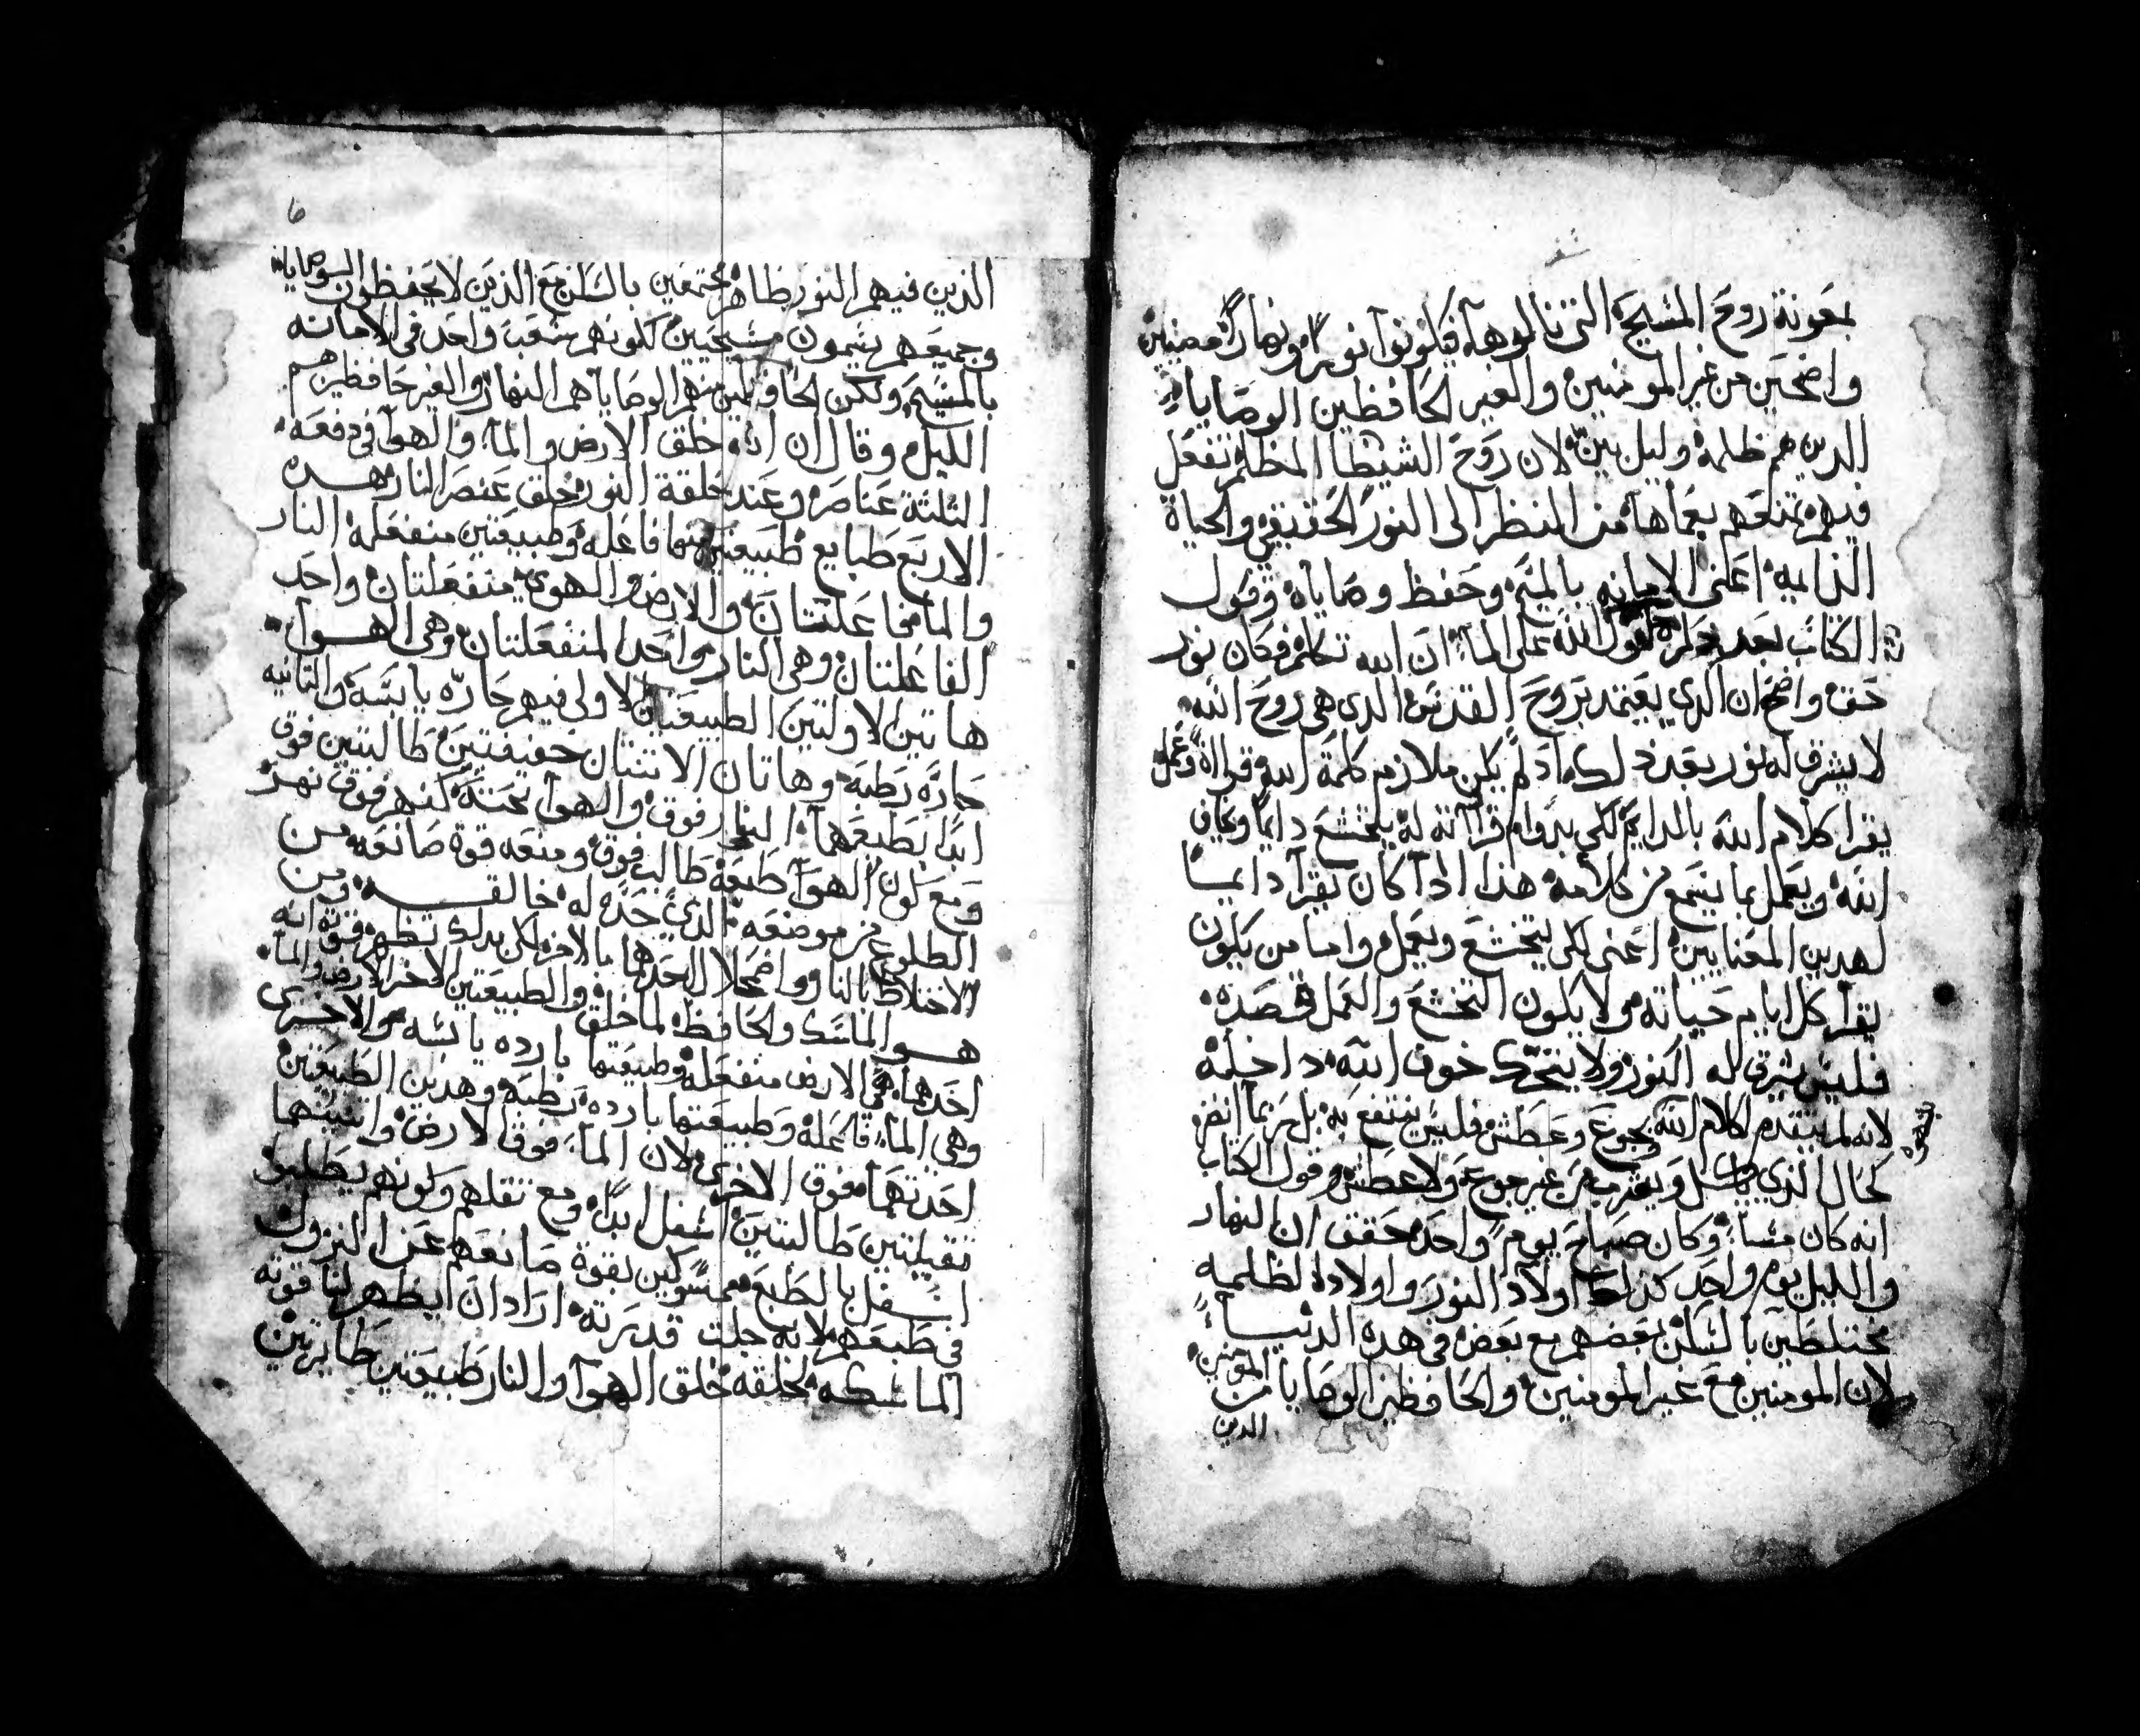 بمعونة روح المسيح التى نالوها فيكونوا نورا ونهارا مضيئين
واضحين من غير المومنين والغير الحافظين الوصايا
الدين هم ظلمة وليل بين لان روح الشيطان المظلم تفعل
فيهم تمنعهم بعماها من النظر الى النور الحقيقي والحياة
الدايمة اعنى الامانه بالمسيح وحفظ وصاياه وقول
الكتاب بعد ذكره حلول الله على الماء ان الله تكلم فكان نور
حق واضح ان الدي يعتمد بروح القدس الدى هى روح الله
لا يشرق له نور بعد ذلك اذ لم يكن ملازم كلمة الله قراة وعمل
يقرا كلام الله بالدايم لكى بدوام قرااته له يتخشع دايما ويخاف
الله ويعمل بما يسمع من كلامه هذا اذا كان يقرا دايما
لهدين المعنايين اعنى لكى يتخشع ويعمل واما من يكون
يقرا كل ايام حياته ولا يكون التخشع والعمل قصده
فليس يشرق له النور ولا يتحرك خوف الله داخله
لانه لم يتقدم لكلام الله بجوع وعطش فليس ينتفع به بل ربما انضر
كحال الذي ياكل ويشرب من غير جوع ولا عطش وقول الكتاب
انه كان مساء وكان صباح يوم واحد حقق ان النهار
والليل يوم واحد كذلك اولاد النور واولاد الظلمه
مختلطين بالسكن بعضهم مع بعض فى هده الدنيا
لان المومنين مع غير المومنين والحافظين الوصايا من المومنين
الدين
6
الذين فيهم النور ظاهر مجتمعين بالسكن مع الذين لا يحفظون الوصايا
وجميعهم يسمون مسيحيين لكونهم شعب واحد فى الامانه
بالمسيح ولكن الحافظين منهم الوصايا هم النهار والغير حافظين هم
الليل وقال ان الله خلق الارض والماء والهوا في دفعة
الثلثة عناصر وعند خلقة النور خلق عنصر النار هده
الاربع طبايع طبيعتين منها فاعله وطبيعتين منفعله النار
والماء فاعلتان والارض والهوى منفعلتان واحد
الفاعلتان وهى النار واحد المنفعلتان وهى الهوا
هاتين الاولتين الطبيعتان الاولى فيهم حاره يابسة والثانيه
حارة رطبة وهاتان الاتنتان خفيفتين طالبتين فوق
ابدا بطبعهما النار فوق والهوا تحته لكنهم فوق نهر
ومع كون الهوا طبعه طالب فوق ومنعه قوة صانعه من
الطلوع من موضعه الذي حده له خالقه ومن
الاختلاط بالنار واضمحلال احدهما بالاخر لكى بدلك تظهر قوة انه
هو الماسك والحافظ لما خلق والطبيعتين الاخر الارض والماء
احدهما هى الارض منفعله وطبيعتها بارده يابسه والاخرى
وهي الماء فاعله وطبيعتها بارده رطبة وهدين الطبيعتين
احدتهما فوق الاخرى لان الماء فوق الارض واتنيتهما
تقيلتين طالبتين اسفل ابدا ومع تقلهم وكونهم يطلبون
اسفل بالطبع ممسوكين بقوة صانعهم عن النزول
في طبعهم لانه جلت قدرته اراد ان يظهر لنا قوته
الماسكه لخلقه خلق الهوا والنار طبيعتين طايرتين